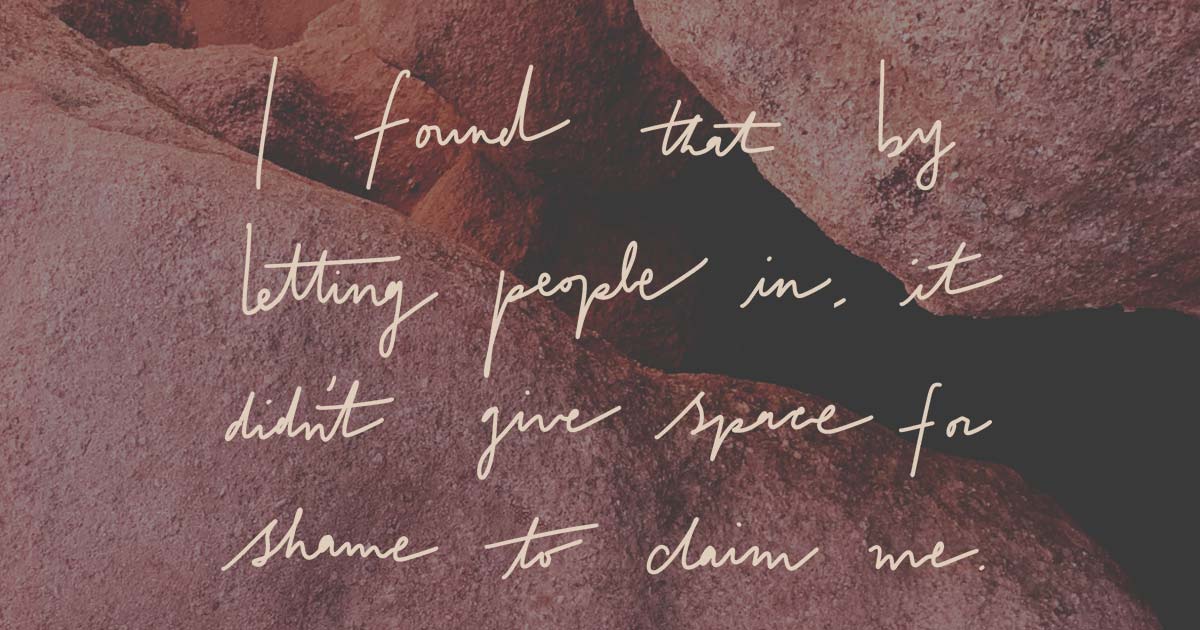 I found that by
letting people in, it
didn't give space for
shame to claim me.